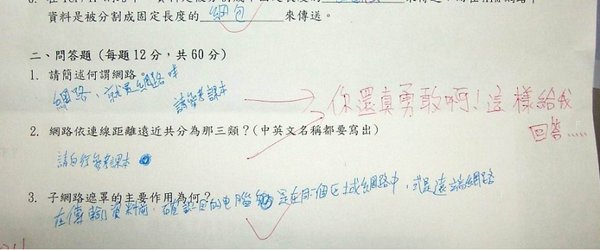 資料是被分割成固定長度的 網包 來傳送。
二、問答題(每題12分,共60分)
1. 請簡述何謂網路
網路,就是網路咩
請參考課本
你還真勇敢啊!這樣給我
回答.....
2. 網路依連線距離遠近共分為那三類?(中英文名稱都要寫出)
請自行參考課本
3. 子網路遮罩的主要作用為何?
在傳輸資料前,確認目的电腦 是在同一個区域網路中,或是遠端網路